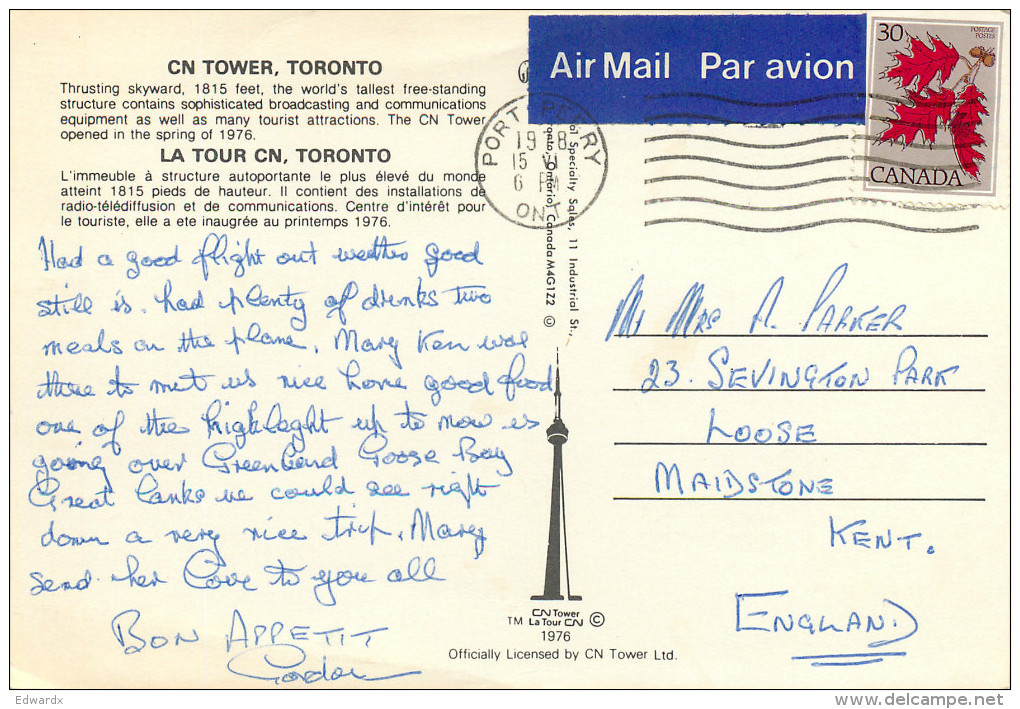 CN TOWER, TORONTO
Thrusting skyward, 1815 feet, the world's tallest free-standing
structure contains sophisticated broadcasting and communications
equipment as well as many tourist attractions. The CN Tower
opened in the spring of 1976.
LA TOUR CN, TORONTO
L'immeuble à structure autoportante le plus élevé du monde
atteint 1815 pieds de hauteur. Il contient des installations de
radio-télédiffusion et de communications. Centre d'intérêt pour
le touriste, elle a ete inaugrée au printemps 1976.
Had a good flight out weather good
still is. had plenty of drinks two
meals on the plane. Mary Ken was
there to met us nice home good food
one of the highleght up to now is
going over Greenland Goose Bay
Great Lanks we could see right
down a very nice trip. Mary
send her Love to you all
BON APPETIT
Air Mail Par avion
30
POSTAGE
POSTES
CANADA
PORT PERRY
15 VI
6 PM
ONT
Specialty Sales, 11 Industrial St.,
Ontario, Canada M4G1Z2 ©
Mr Mrs A. PARKER
23. SEVINGTON PARK
LOOSE
MAIDSTONE
KENT.
ENGLAND
CN Tower
TM La Tour CN ©
1976
Officially Licensed by CN Tower Ltd.
Edwardx
delcampe.net